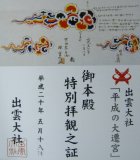 平成の大遷宮
出雲大社
御本殿
特別拝観之証
平成二十年五月十八日
出雲大社